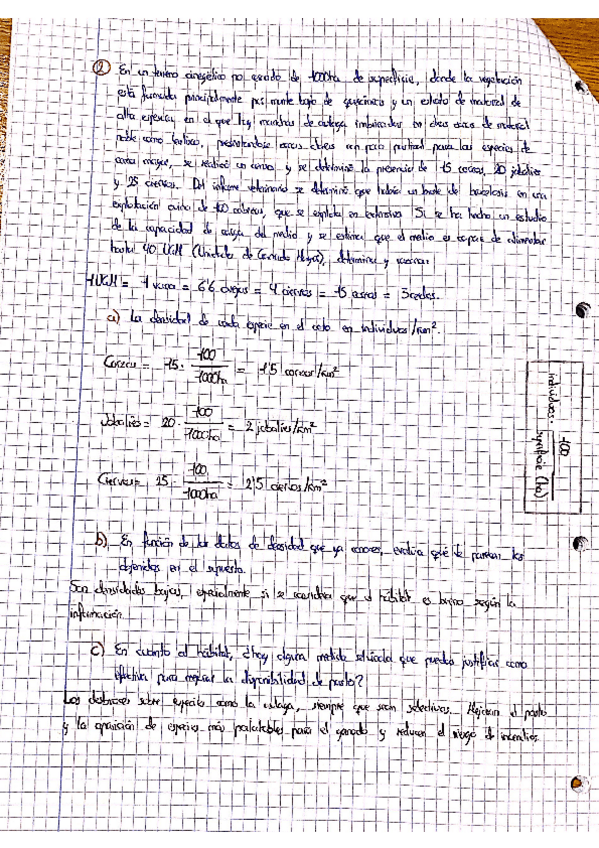 ② En un terreno cinegético por cercado de 1000ha de superficie, donde la vegetación
está formada principalmente por monte bajo de quercíneas y un estrato de matorral de
alta espesura, en el que hay manchas de aulaga con otras de matorral
noble como lentisco, presentándose claros con pasto para las especies de
caza mayor, se realizó un censo y se determinó la presencia de 15 corzos, 20 jabalíes
y 25 ciervos. Del informe veterinario se determinó que había un brote de en una
explotación de 100 cabezas, que se explota en extensivo. Si se ha hecho un estudio
de la capacidad de carga del medio y se estima que el medio es capaz de alimentar
hasta 40 UGM (Unidades de Ganado Mayor), determina y
1UGM = 1 vaca = 6'6 ovejas = 4 ciervos = 15 = 3 cerdos.
a) La densidad de cada especie en el coto en individuos/km².
Corzos = 15 · 100/1000ha = 1'5 corzos/km²
individuos · 100/superficie (ha)
Jabalíes = 20 · 100/1000ha = 2 jabalíes/km²
Ciervos = 25 · 100/1000ha = 2'5 ciervos/km²
b) En función de los datos de densidad que ya conoces, evalúa qué te parecen los
obtenidos en el supuesto.
Son densidades bajas, especialmente si se considera que el hábitat es bueno según la
información.
c) En cuanto al hábitat, ¿hay alguna medida selvícola que puedas justificar como
efectiva para mejorar la disponibilidad de pasto?
Los desbroces sobre especies como la aulaga, siempre que sean selectivos. Mejoran el pasto
y la aparición de especies más palatables para el ganado y reducen el riesgo de incendios.